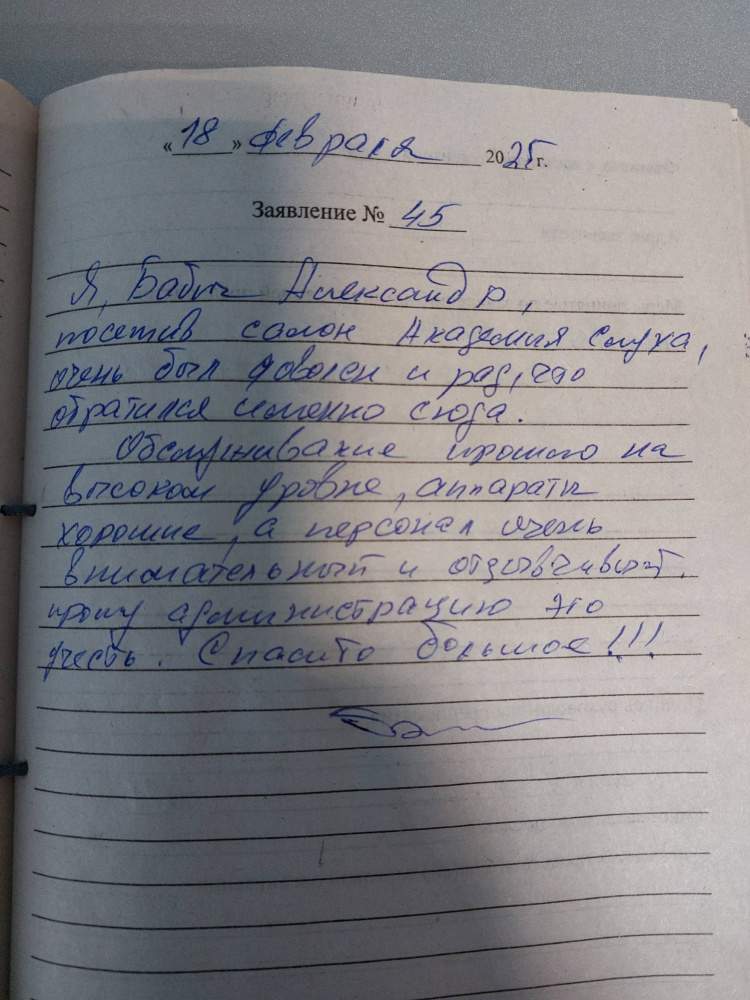 «18» февраля 2025г.
Заявление № 45
Я, Бабич Александр,
посетив салон Академия Слуха,
очень был доволен и рад, что
обратился именно сюда.
Обслуживание прошло на
высоком уровне, аппараты
хорошие, а персонал очень
внимательный и отзывчивый.
прошу администрацию это
учесть. Спасибо большое!!!